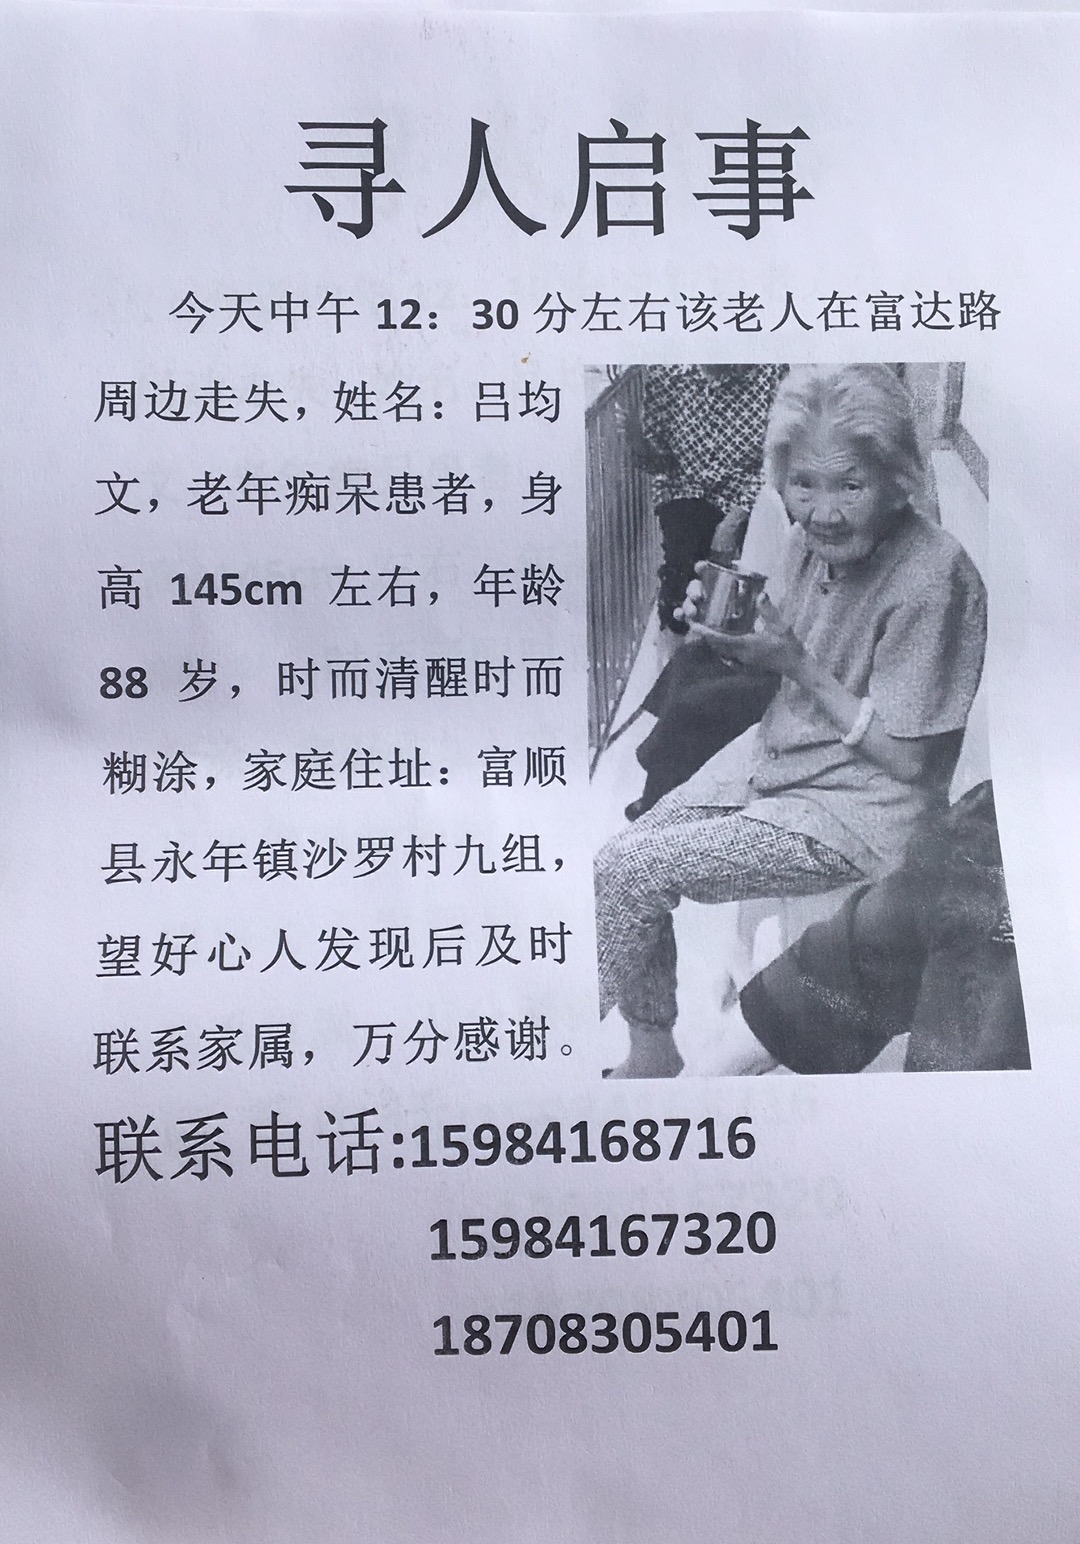 寻人启事
今天中午 12：30 分左右该老人在富达路
周边走失，姓名：吕均
文，老年痴呆患者，身
高 145cm 左右，年龄
88 岁，时而清醒时而
糊涂，家庭住址：富顺
县永年镇沙罗村九组，
望好心人发现后及时
联系家属，万分感谢。
联系电话:15984168716
15984167320
18708305401